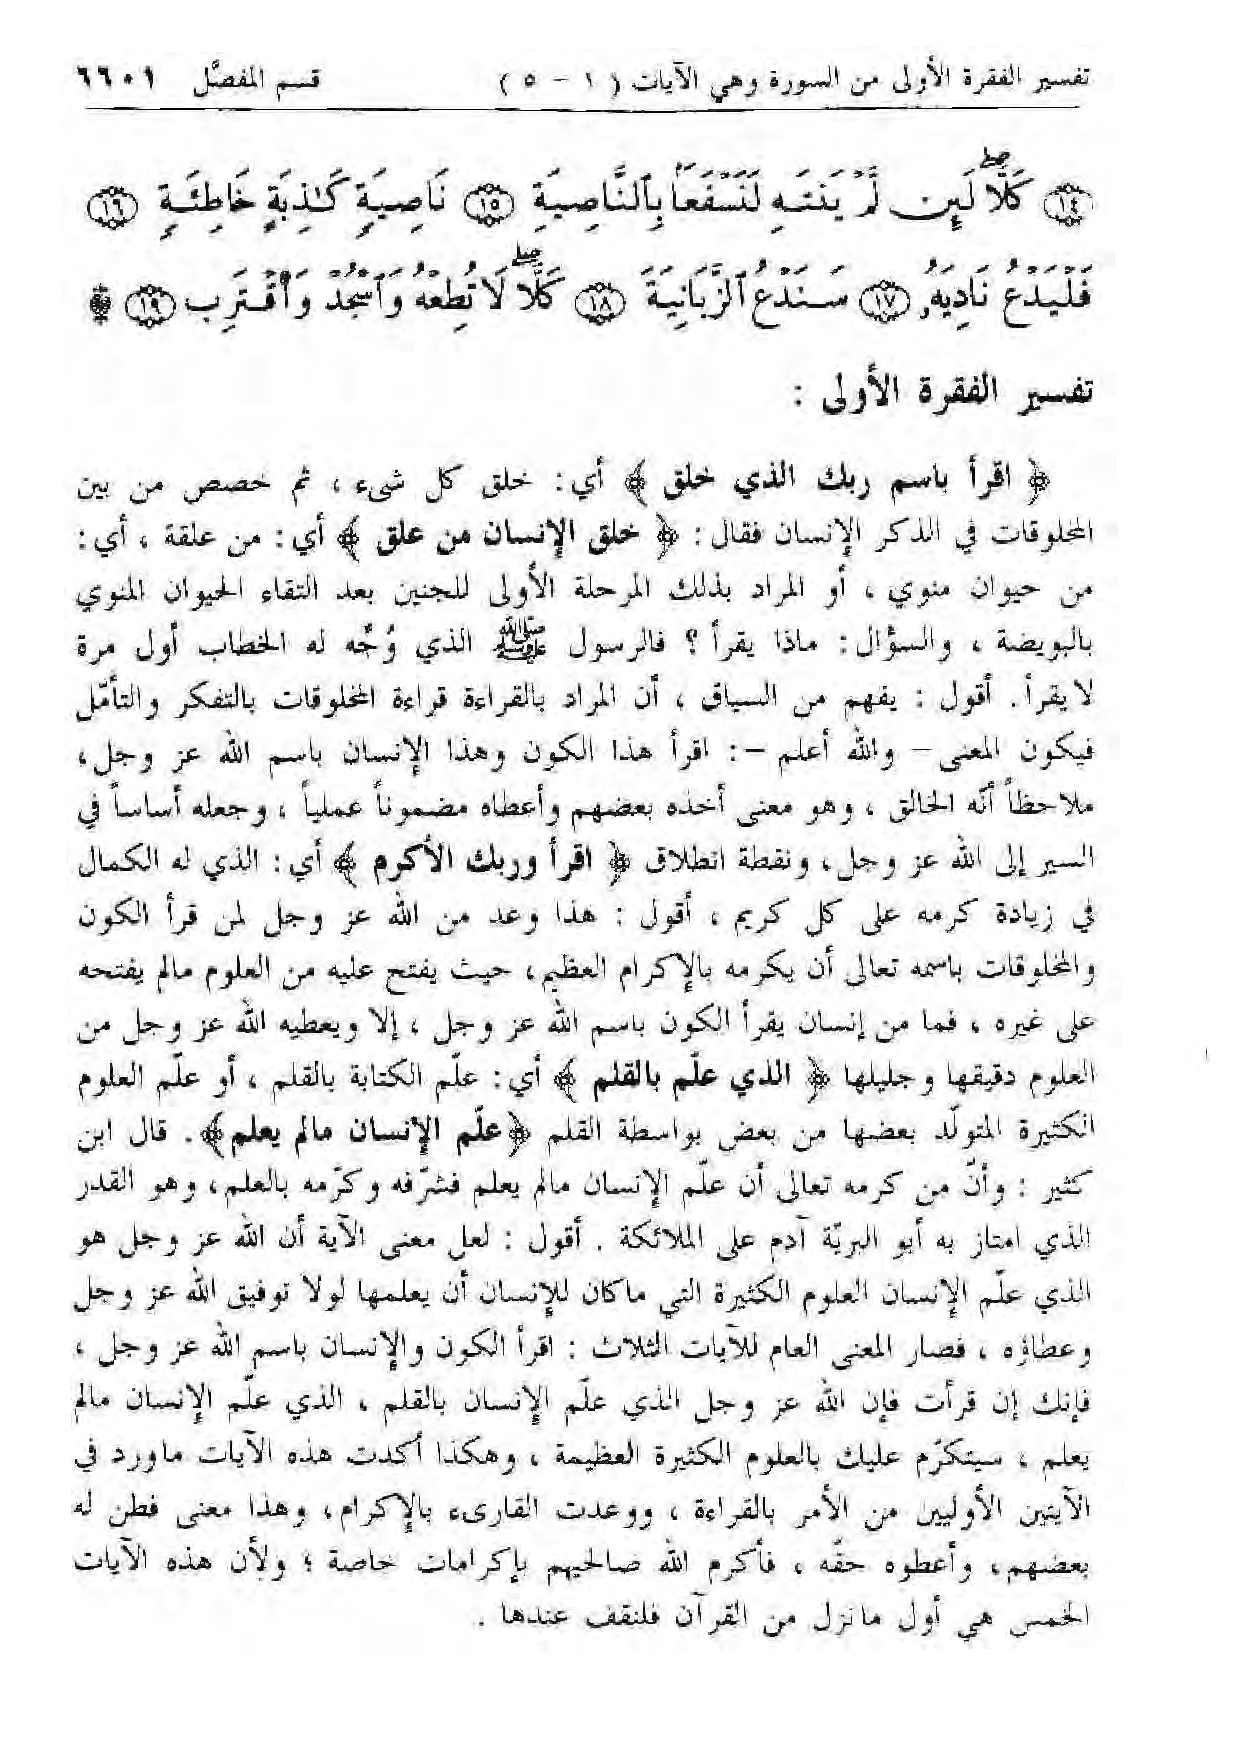 تفسير الفقرة الأولى من السورة وهي الآيات ( ١ - ٥ ) قسم المفصَّل ٦٦٠١
﴿١٤﴾ كَلَّا لَئِن لَّمْ يَنتَهِ لَنَسْفَعًۢا بِٱلنَّاصِيَةِ ﴿١٥﴾ نَاصِيَةٍ كَـٰذِبَةٍ خَاطِئَةٍ ﴿١٦﴾
فَلْيَدْعُ نَادِيَهُۥ ﴿١٧﴾ سَنَدْعُ ٱلزَّبَانِيَةَ ﴿١٨﴾ كَلَّا لَا تُطِعْهُ وَٱسْجُدْ وَٱقْتَرِب ﴿١٩﴾
تفسير الفقرة الأولى :
﴿ اقرأ باسم ربك الذي خلق ﴾ أي: خلق كل شيء ، ثم خصص من بين
المخلوقات في الذكر الإنسان فقال : ﴿ خلق الإنسان من علق ﴾ أي: من علقة ، أي:
من حيوان منوي ، أو المراد بذلك المرحلة الأولى للجنين بعد التقاء الحيوان المنوي
بالبويضة ، والسؤال: ماذا يقرأ ؟ فالرسول ﷺ الذي وُجِّه له الخطاب أول مرة
لا يقرأ. أقول : يفهم من السياق ، أن المراد بالقراءة قراءة المخلوقات بالتفكر والتأمّل
فيكون المعنى - والله أعلم -: اقرأ هذا الكون وهذا الإنسان باسم الله عز وجل،
ملاحظاً أنّه الخالق ، وهو معنى أخذه بعضهم وأعطاه مضموناً عملياً ، وجعله أساساً في
السير إلى الله عز وجل، ونقطة انطلاق ﴿ اقرأ وربك الأكرم ﴾ أي: الذي له الكمال
في زيادة كرمه على كل كريم ، أقول : هذا وعد من الله عز وجل لمن قرأ الكون
والمخلوقات باسمه تعالى أن يكرمه بالإكرام العظيم، حيث يفتح عليه من العلوم مالم يفتحه
على غيره ، فما من إنسان يقرأ الكون باسم الله عز وجل ، إلا ويعطيه الله عز وجل من
العلوم دقيقها وجليلها ﴿ الذي علّم بالقلم ﴾ أي: علّم الكتابة بالقلم ، أو علّم العلوم
الكثيرة المتولّد بعضها من بعض بواسطة القلم ﴿علّم الإنسان مالم يعلم﴾. قال ابن
كثير : وأنّ من كرمه تعالى أن علّم الإنسان مالم يعلم فشرّفه وكرّمه بالعلم، وهو القدر
الذي امتاز به أبو البريّة آدم على الملائكة . أقول : لعل معنى الآية أن الله عز وجل هو
الذي علّم الإنسان العلوم الكثيرة التي ماكان للإنسان أن يعلمها لولا توفيق الله عز وجل
وعطاؤه ، فصار المعنى العام للآيات الثلاث : اقرأ الكون والإنسان باسم الله عز وجل ،
فإنك إن قرأت فإن الله عز وجل الذي علّم الإنسان بالقلم ، الذي علّم الإنسان مالم
يعلم ، سيتكرّم عليك بالعلوم الكثيرة العظيمة ، وهكذا أكدت هذه الآيات ماورد في
الآيتين الأوليين من الأمر بالقراءة ، ووعدت القارىء بالإكرام، وهذا معنى فطن له
بعضهم، وأعطوه حقّه ، فأكرم الله صالحيهم بإكرامات خاصة ؛ ولأن هذه الآيات
الخمس هي أول مانزل من القرآن فلنقف عندها .